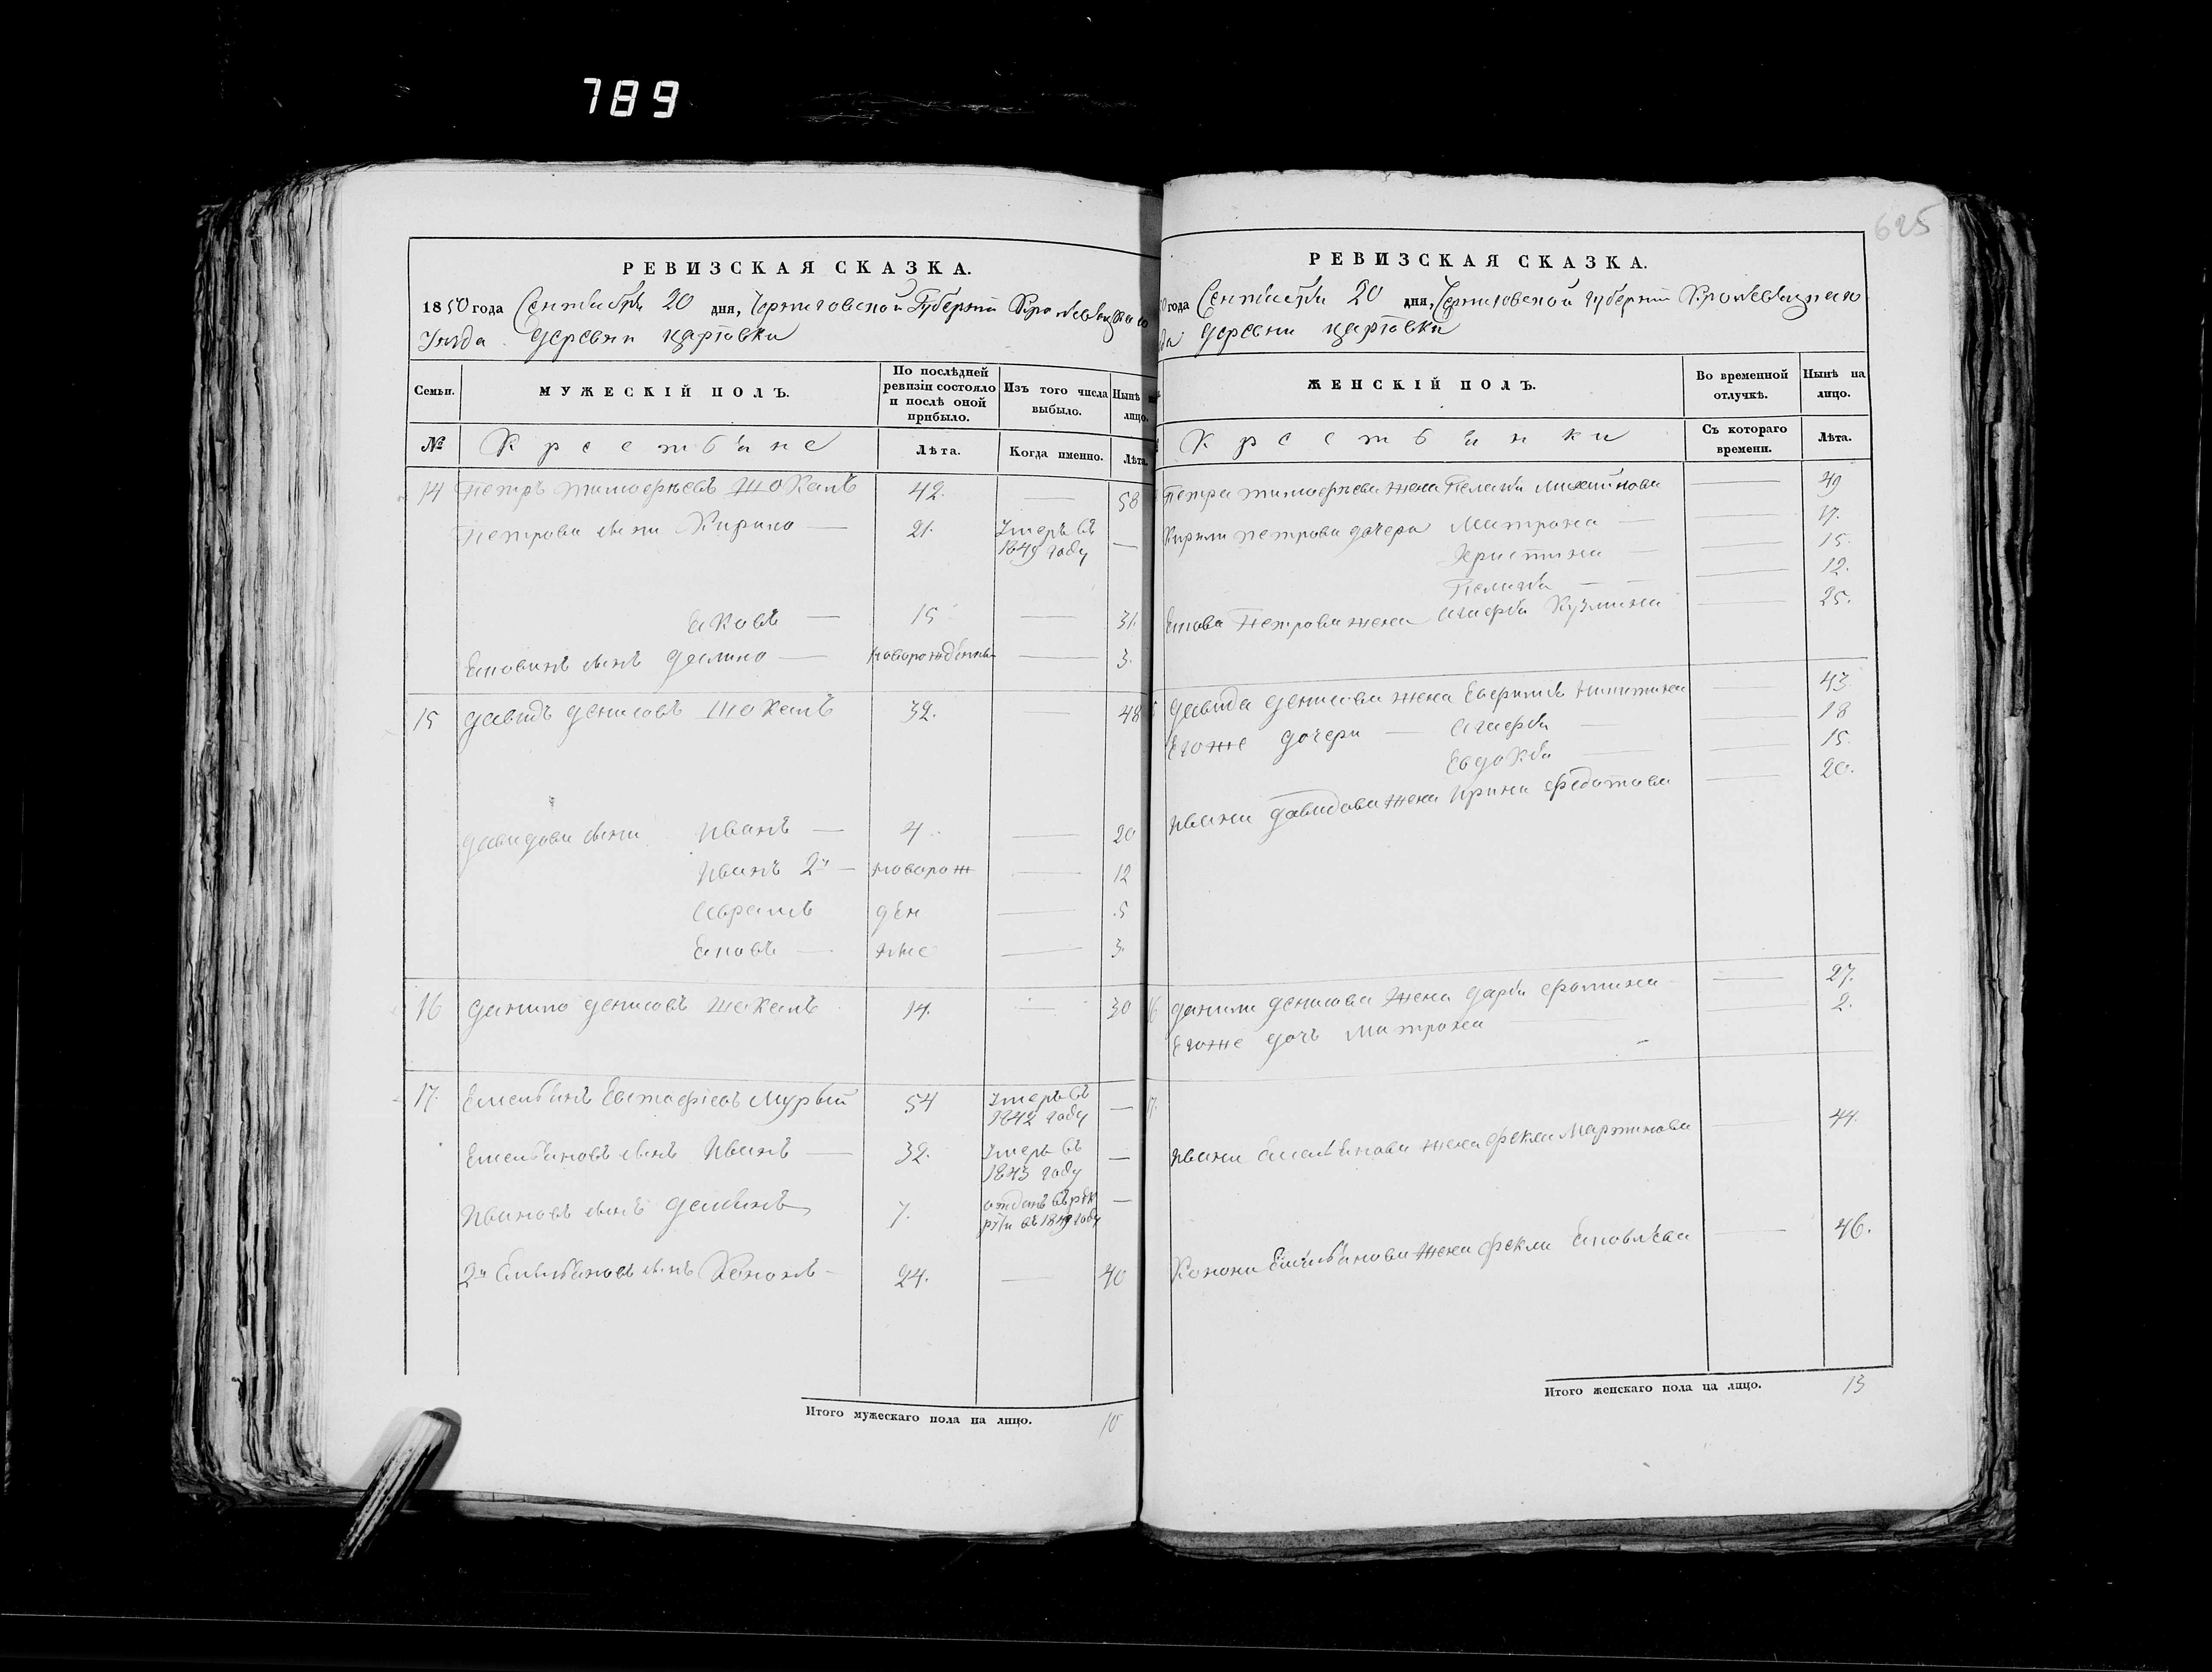 789
625
РЕВИЗСКАЯ СКАЗКА.
1850 года Сентября 20 дня, Черниговской Губерніи Кролевецкаго
Уезда деревни царговки
Семьи. МУЖЕСКІЙ ПОЛЪ. По послѣдней ревизіи состояло и послѣ оной прибыло. Изъ того числа выбыло. Нынѣ на лицо.
№ Крестьяне Лѣта. Когда именно. Лѣта.
14 Петръ тимофѣевъ 42. — 58
Петрови сыни Кирило — 21. Умеръ въ 1849 году —
Яковъ — 15 — 31.
Яковинъ сынъ данило — новорожденны — 3.
15 давидъ денисовъ 32. — 48
давидови сыни Иванъ — 4. — 20
Иванъ 2й — новорож — 12
Аврамъ ден — 5
Яковъ — ные — 3.
16 данило денисовъ 14. — 30
17. Емельянъ Евстафіевъ Мурый 54 Умеръ въ 1842 году —
Емельяновъ сынъ Иванъ — 32. Умеръ въ 1843 году —
Ивановъ сынъ демянъ 7. отданъ въ рекруты въ 1849 году —
2й Емельяновъ сынъ Кононъ — 24. — 40
Итого мужескаго пола на лицо. 10
РЕВИЗСКАЯ СКАЗКА.
0 года Сентября 20 дня, Черниговской губерніи Кролевецкаго
да деревни царговки
ЖЕНСКІЙ ПОЛЪ. Во временной отлучкѣ. Нынѣ на лицо.
Крестьянки Съ котораго времени. Лѣта.
Петра тимофѣева жена Пелагея — 49
Кирили петрова дочери Матрона — — 17.
Христина — — 15.
Пелагея — — 12.
Якова Петрова жена Агафья Кузмина — 25.
давида денисова жена Евфимія Никитина — 43.
Егоже дочери — Агафья — — 18
Евдокія — — 15.
Ивана давидова жена Ирина федотова — 20.
16 данили денисова жена дарья фомина — 27.
Егоже дочь Матрона — — 2.
17.
Ивана Емельянова жена фекла Мартинова — 44.
Конона Емельянова жена фекла Яковлева — 46.
Итого женскаго пола на лицо. 13